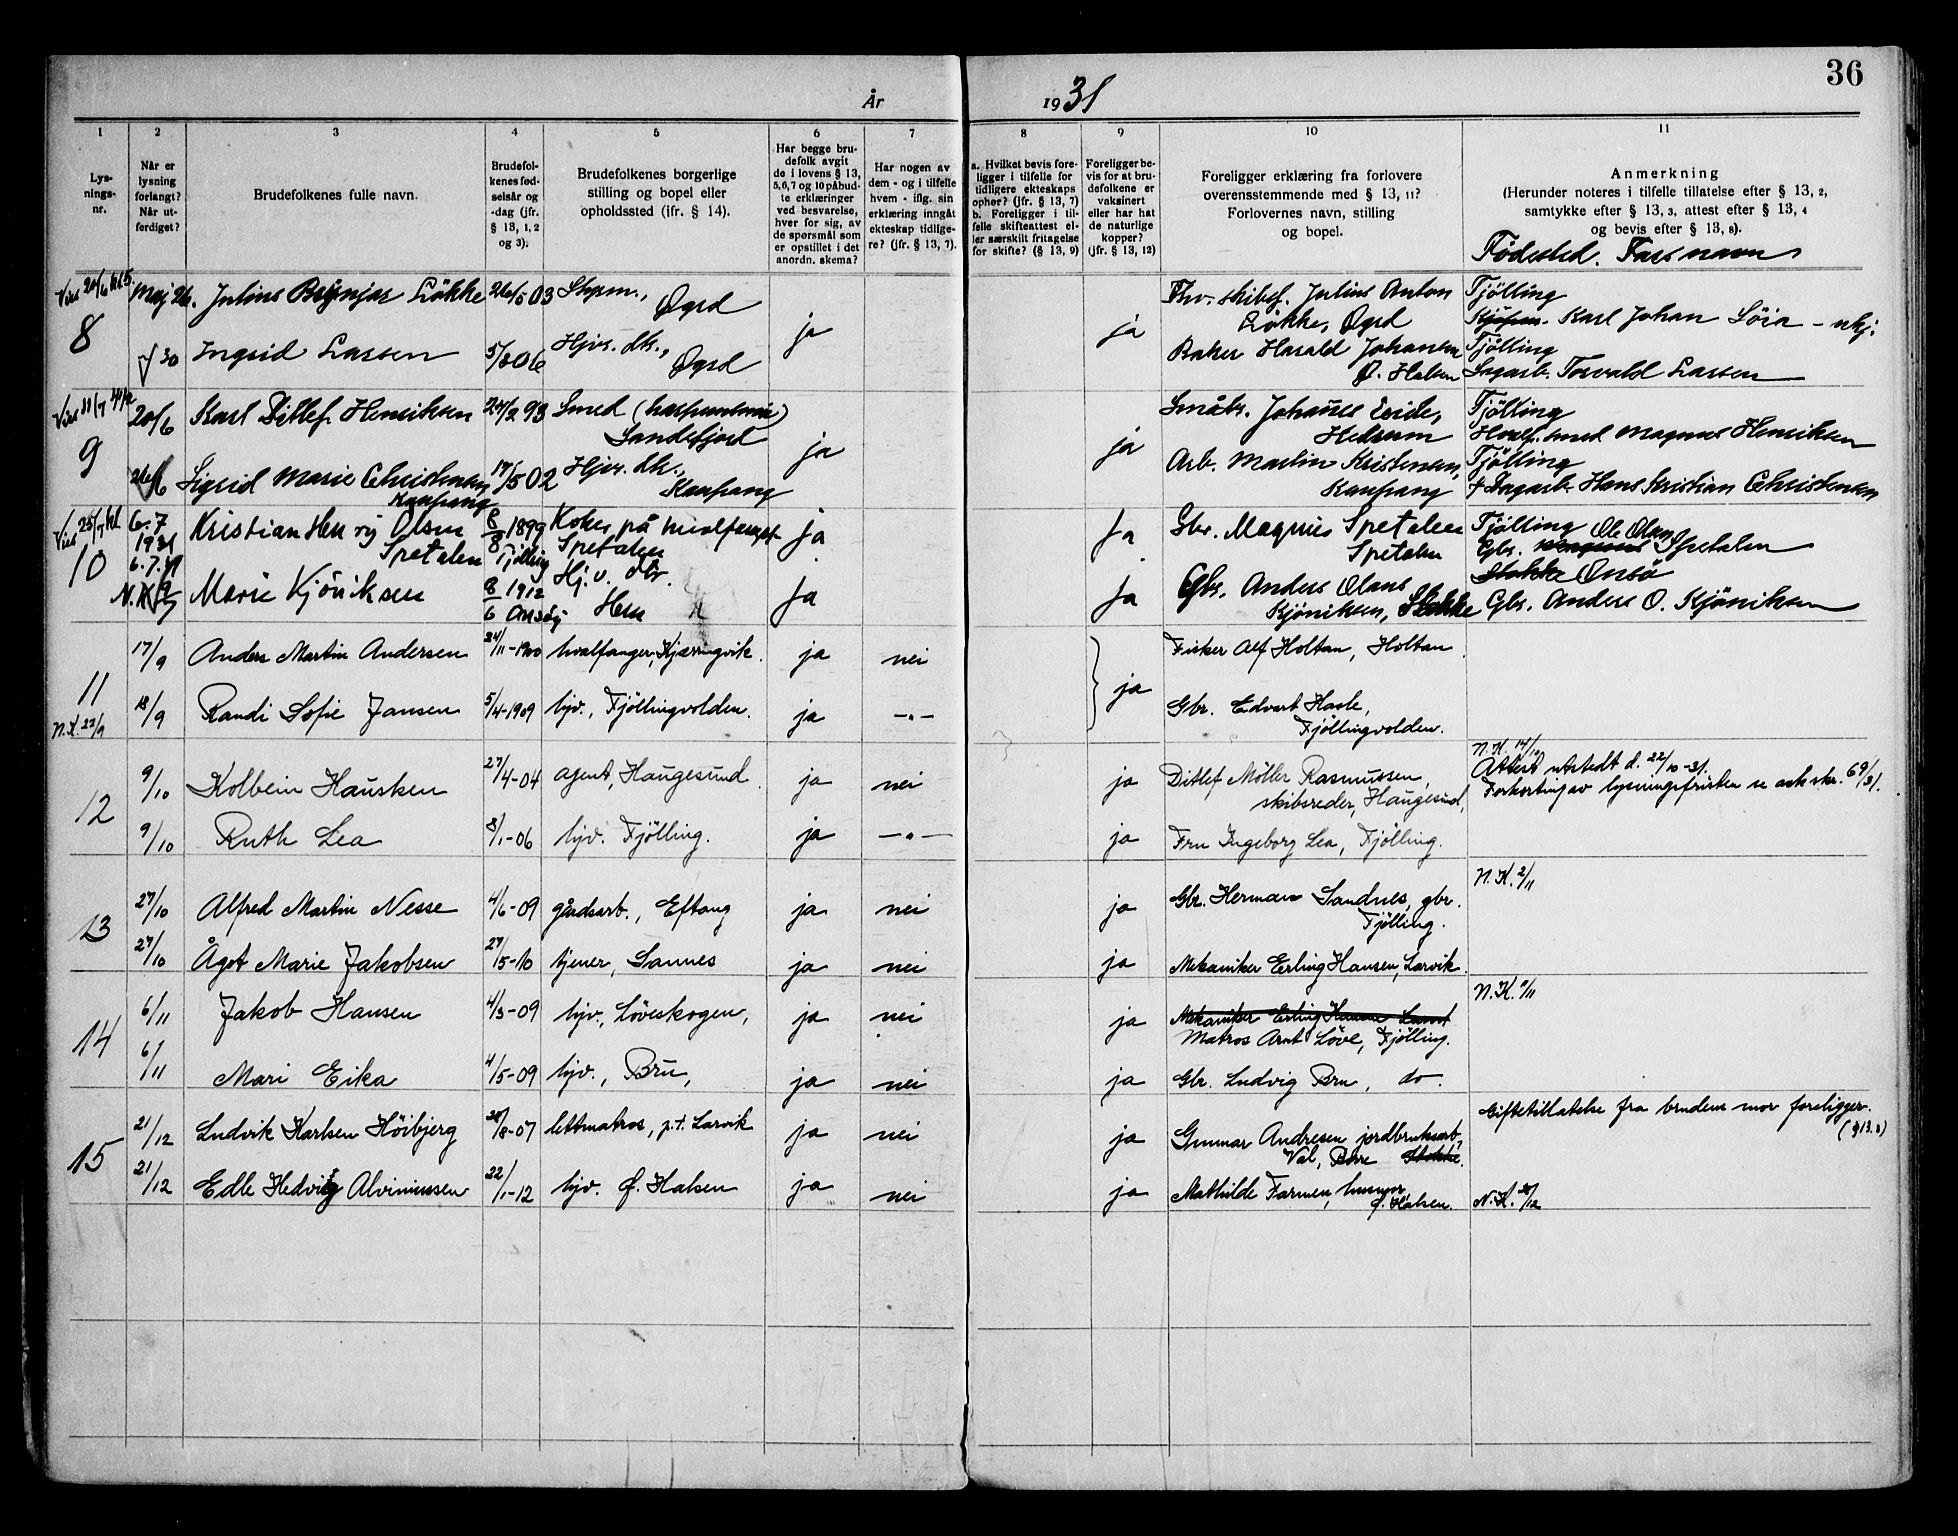 36
År 1931
1 2 3 4 5 6 7 8 9 10 11
Lys-
nings-
nr.
Når er
lysning
forlangt?
Når ut-
ferdiget?
Brudefolkenes fulle navn.
Brudefol-
kenes fød-
selsår og
-dag (jfr.
§ 13, 1, 2
og 3).
Brudefolkenes borgerlige
stilling og bopel eller
opholdssted (ifr. § 14).
Har begge bru-
defolk avgit
de i lovens § 13,
5,6,7 og 10 påbud-
te erklæringer
ved besvarelse,
hver for sig, av
de spørsmål som
er opstillet i det
anordn. skema?
Har nogen av
dem - og i tilfelle
hvem - iflg. sin
erklæring inngått
ekteskap tidlige-
re? (jfr. § 13, 7).
a. Hvilket bevis fore-
ligger i tilfelle for
tidligere ekteskaps
ophør? (jfr. § 13, 7)
b. Foreligger i til-
felle skifteattest el-
ler særskilt fritagelse
for skifte? (§ 13, 9)
Foreligger be-
vis for at bru-
defolkene er
vaksinert
eller har hat
de naturlige
kopper?
(jfr. § 13, 12)
Foreligger erklæring fra forlovere
overensstemmende med § 13, 11?
Forlovernes navn, stilling
og bopel.
Anmerkning
(Herunder noteres i tilfelle tillatelse efter § 13, 2,
samtykke efter § 13, 3, attest efter § 13, 4
og bevis efter § 13, 8).
Fødested. Fars navn
Viet 20/6 kl 5
8 Maj 26. Julius Brynjar Løkke 26/5 03 Styrm., ja ja Julius Anton Tjölling
Øgrd Løkke, Øgrd Karl Johan Löia
30 Ingrid Larsen 5/8 06 Hjv. dtr., Baker Harald Johansen Tjölling
Øgrd Ø. Halsen Torvald Larsen
Viet 11/7
9 20/6 Karl Ditlef Henriksen 24/2 93 Smed ja ja Småbr. Johannes Eeide, Tjölling
Sandefjord Hedrum smed Magnus Henriksen
26/6 Sigrid Marie Christensen 17/5 02 Hjv. dtr. Arb. Martin Kristensen, Tjölling
Kaupang Kaupang Kaupang Hans Kristian Christensen
Viet 25/7 kl
10 6.7 1931 Kristian Henry Olsen 8/8 1899 Koker på ja ja Gbr. Magnus Spetalen Tjölling Ole Olsen
6.7.31 Spetalen Tjölling Spetalen Spetalen Gbr. Magnus Spetalen
Stokke Onsö
N.K. 9/7 Marie Kjöniksen 8/6 1912 Hj. v. dtr. ja ja Gbr. Anders Olaus Gbr. Anders O. Kjöniksen
Onsöy Hem Kjöniksen, Stokke
11 17/9 Anders Martin Andersen 24/11-1900 hvalfanger, Kjærringvik. ja nei ja Fisker Alf Holtan, Holtan.
N.K. 22/9 18/9 Randi Sofie Jansen 5/4-1909 hjv., Tjöllingvolden. ja -"- Gbr. Edvart Hasle,
Tjöllingvolden.
N.K. 14/10
12 9/10 Kolbein Hausken 27/4-04 agent, Haugesund. ja nei ja Ditlef Møller Rasmussen, Attest utstedt d. 22/10-31.
skibsreder, Haugesund, Forkorting av lysningsfristen se ark skr. 69/31.
9/10 Ruth Lea 8/1-06 hjv. Tjölling. ja -"- ja Fru Ingeborg Lea, Tjölling.
13 27/10 Alfred Martin Nesse 4/6-09 gårdsarb., Eftang ja nei ja Gbr. Herman Sandnes, gbr. N.K. 2/11
Tjölling.
27/10 Åget Marie Jakobsen 27/5-10 tjener, Sannes ja nei ja Mekaniker Erling Hansen, Larvik.
14 6/11 Jakob Hansen 4/3-09 hjv., Löveskogen, ja nei ja Mekaniker Erling Hansen N.K. 9/11
Matros Arnt Löve, Tjölling.
6/11 Mari Eika 4/5-09 hjv., Bru, ja nei ja Gbr. Ludvig Bru, do.
15 21/12 Ludvik Karlsen Höibjerg 8-07 lettmatros, p.t. Larvik ja nei ja Gunnar Andresen jordbruksarb. Giftetillatelse fra brudens mor foreligger.
Val, Borre Stokke. (§ 13.3)
21/12 Edle Hedvig Alviniussen 22/1-12 hjv. Ø. Halsen ja nei ja Mathilde Farmen, husmor N.K.
Ø. Halsen.